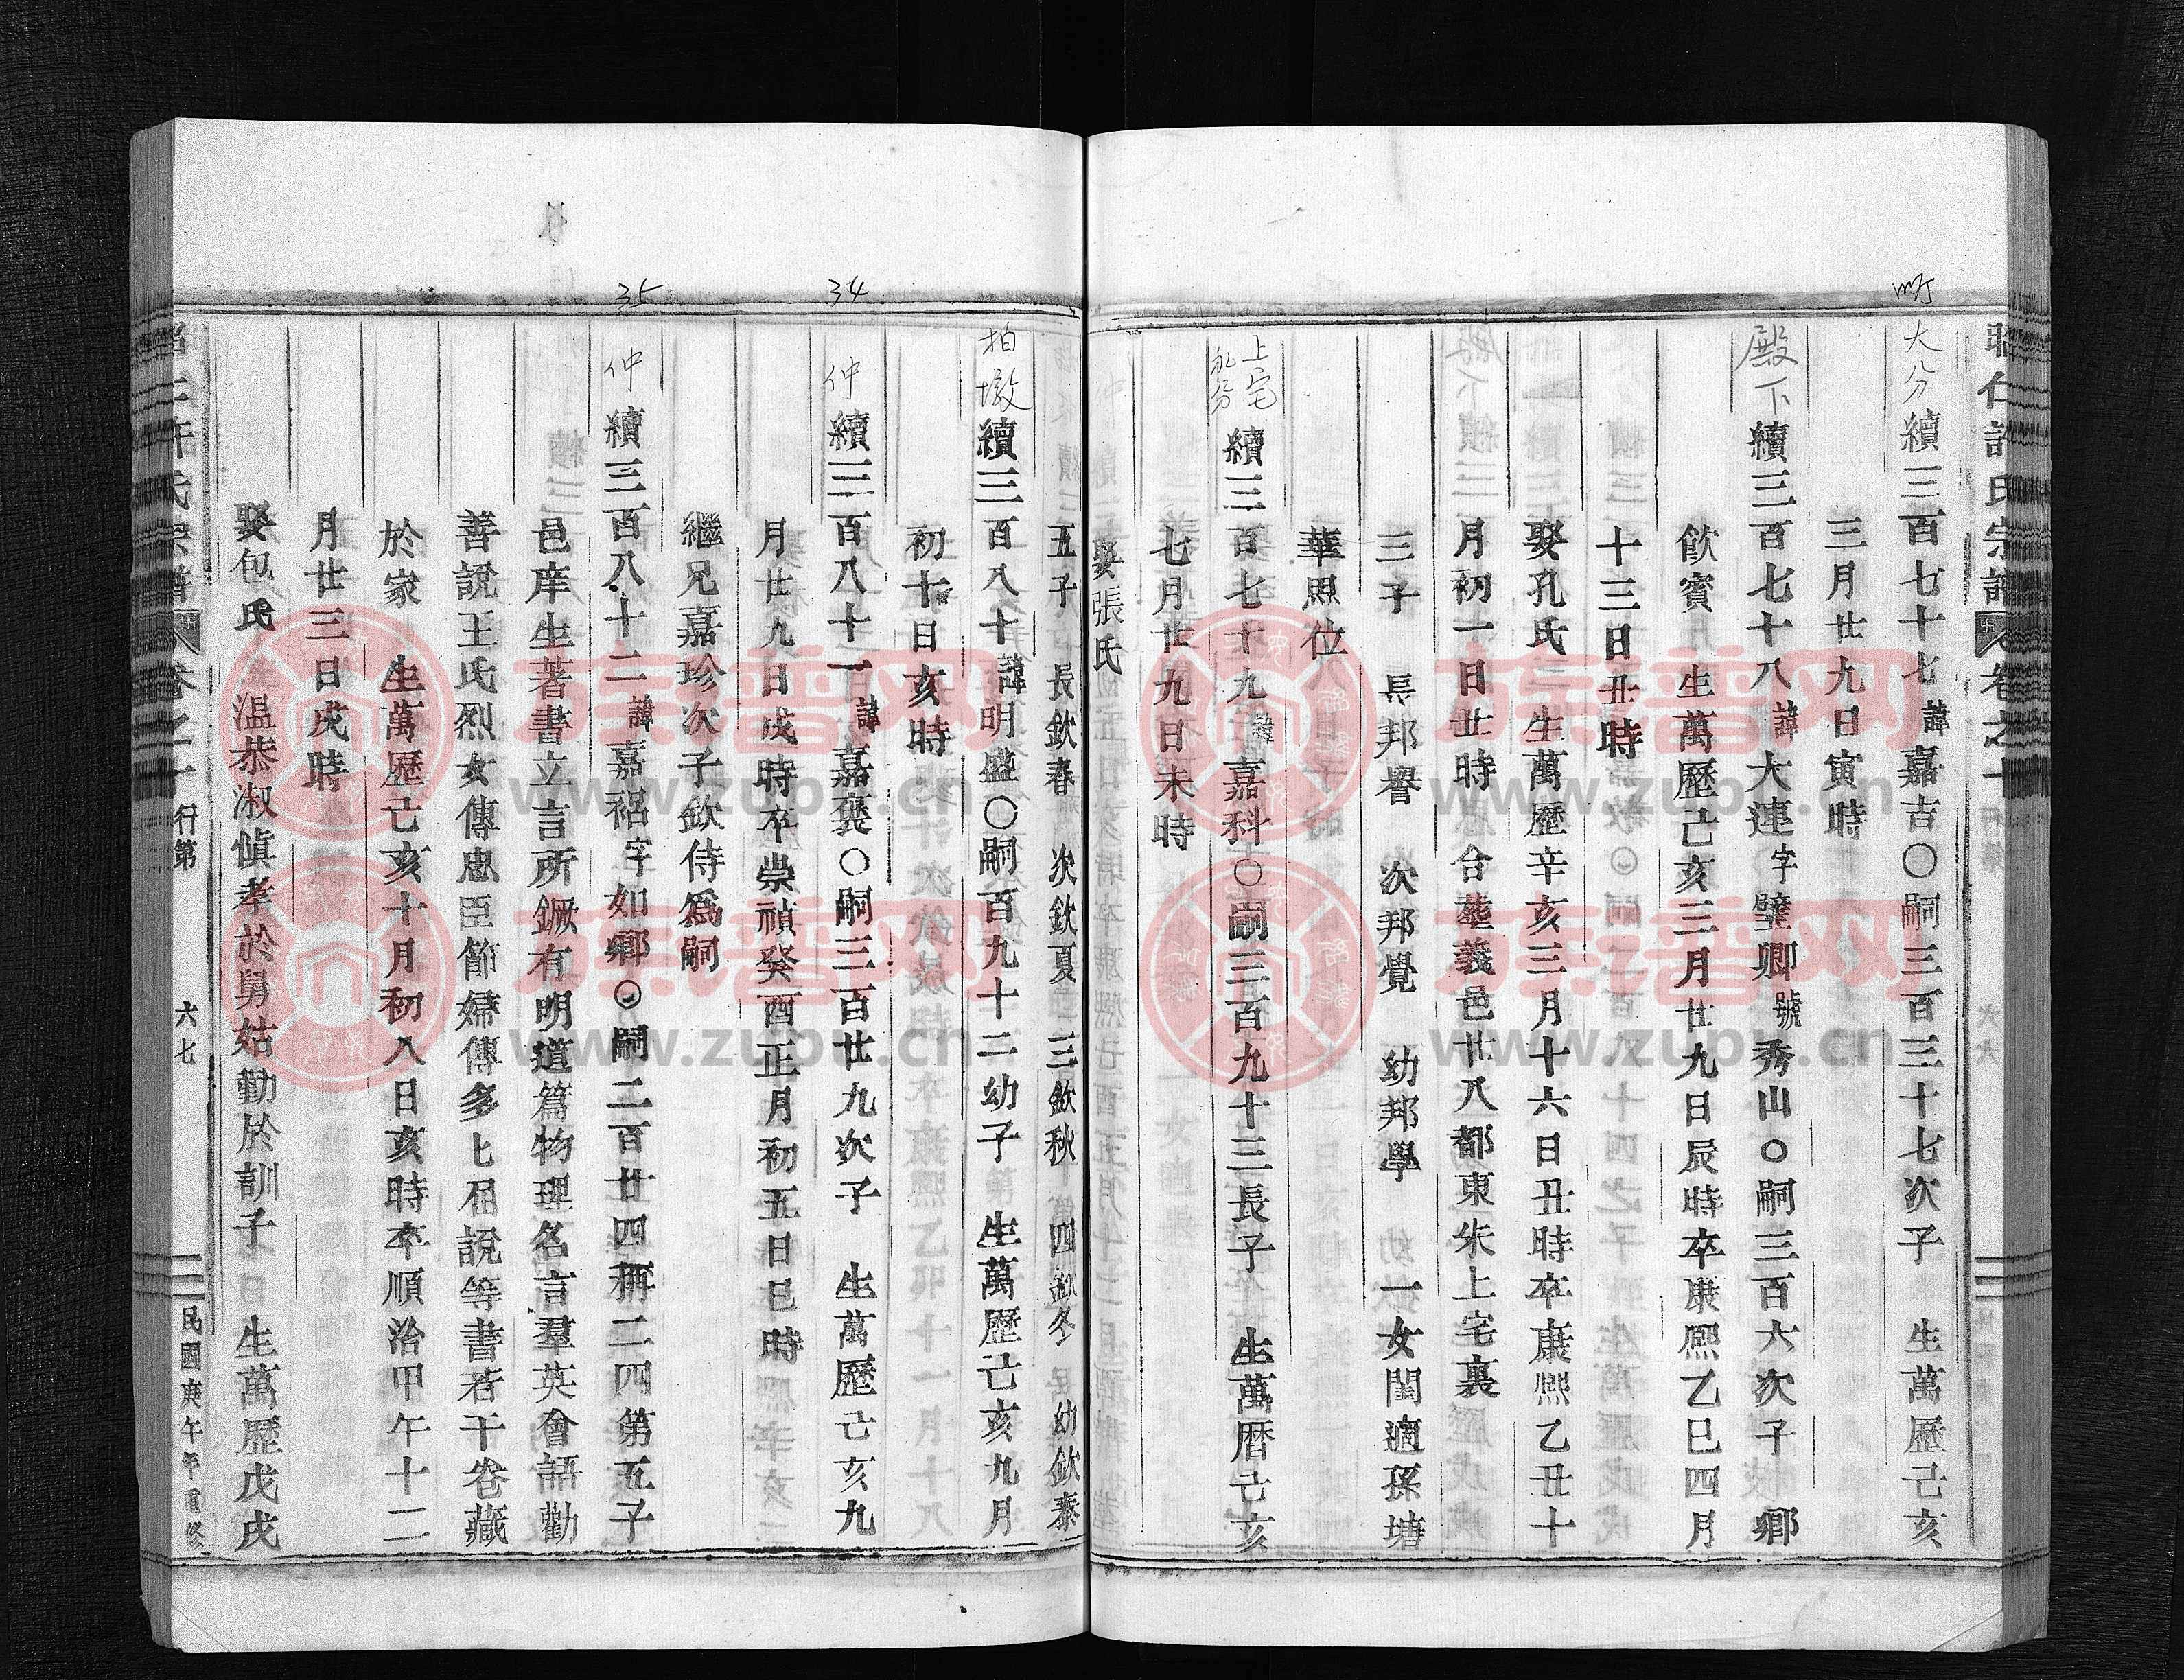 昭仁許氏宗譜 卷之十
大分
續三百七十七諱嘉吉○嗣三百三十七次子 生萬歷己亥
三月廿九日寅時
殿下
續三百七十八諱大連字璧卿號秀山○嗣三百六次子 鄉
飲賓 生萬歷己亥三月廿九日辰時卒康熙乙巳四月
十三日丑時
娶孔氏 生萬歷辛亥三月十六日丑時卒康熙乙丑十
月初一日丑時 合塟義邑廿八都東朱上宅裏
三子 長邦譽 次邦覺 幼邦學 一女閨適孫塘
華思位
上宅
續三百七十九諱嘉科○嗣三百九十三長子 生萬曆己亥
七月廿九日未時
娶張氏
五子 長欽春 次欽夏 三欽秋 四欽冬 幼欽泰
柏墩
續三百八十諱明盛○嗣百九十二幼子 生萬歷己亥九月
初十日亥時
34
仲
續三百八十一諱嘉褒○嗣三百廿九次子 生萬歷己亥九
月廿九日戌時卒崇禎癸酉正月初五日巳時
繼兄嘉珍次子欽侍爲嗣
35
仲
續三百八十二諱嘉祒字如鄉○嗣二百廿四稱二四第五子
邑庠生著書立言所鐫有明道篇物理名言羣英會語勸
善說王氏烈女傳忠臣節婦傳多七屈說等書若干卷藏
於家 生萬歷己亥十月初八日亥時卒順治甲午十二
月廿三日戌時
娶包氏 温恭淑愼孝於舅姑勤於訓子 生萬歷戊戌
卷之十 行第 六七 民國庚午年重修